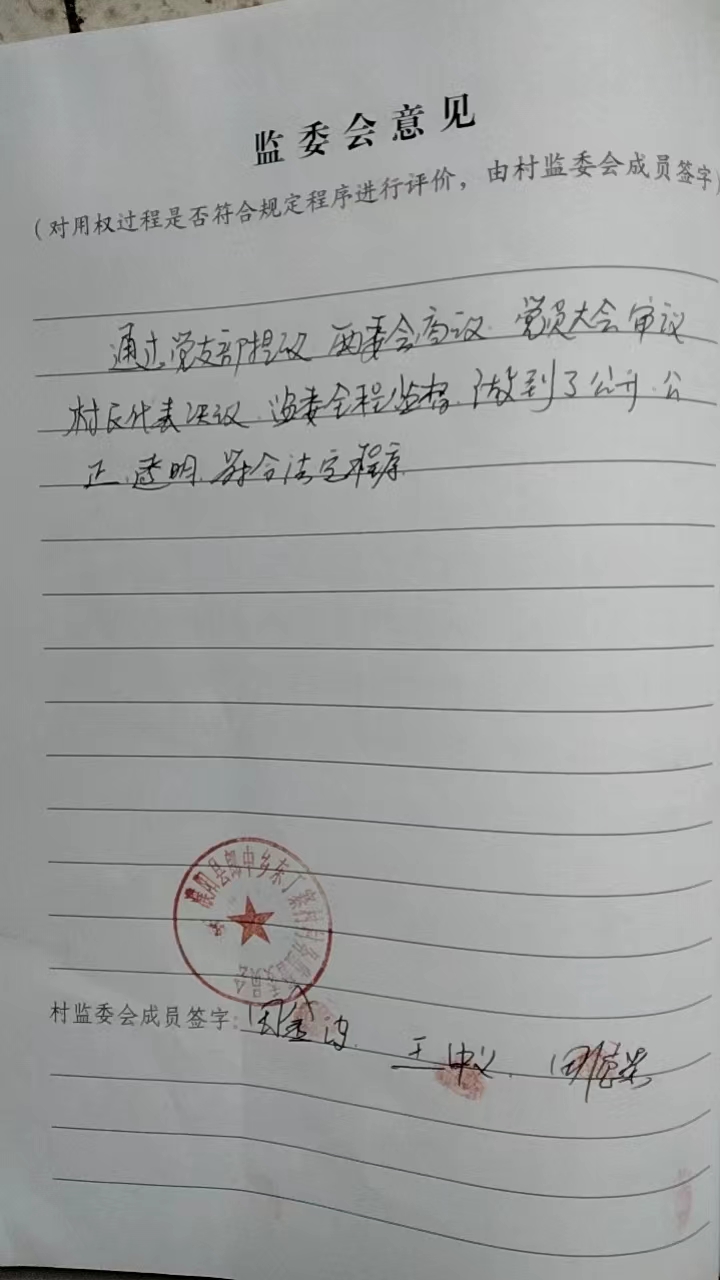 监委会意见
（对用权过程是否符合规定程序进行评价，由村监委会成员签字）
通过党支部提议 两委会商议 党员大会审议
村民代表决议 监委全程监督 做到了公开 公
正 透明 符合法定程序
濮阳县郎中乡东丁寨村村务监督委员会
村监委会成员签字：
王中义